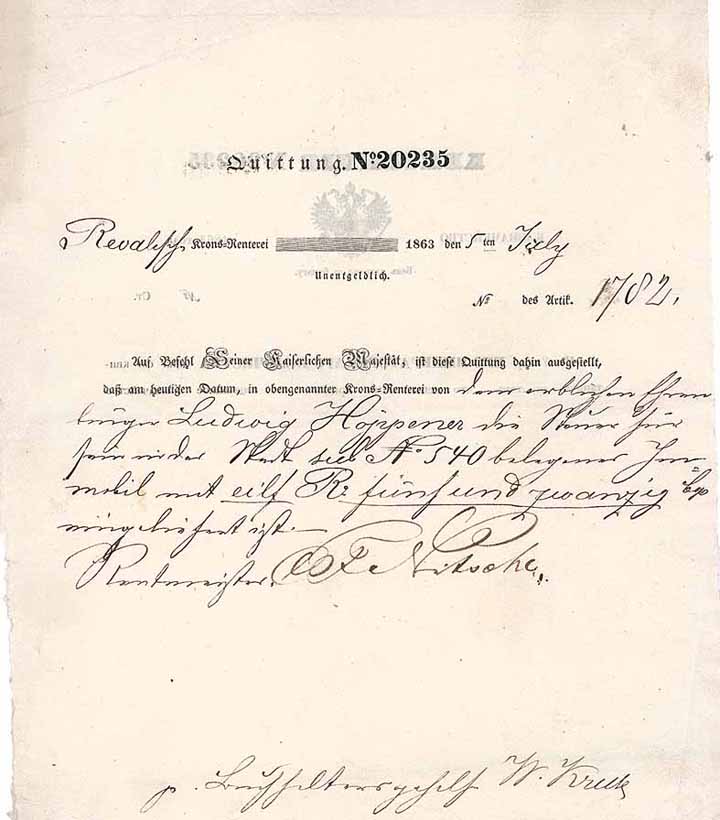 Quittung. No. 20235
Revalsch Krons-Renterei 1863 den 5 ten July
Unentgeldlich.
No des Artik. 1782.
Auf Befehl Seiner Kaiserlichen Majestät, ist diese Quittung dahin ausgestellt,
daß am heutigen Datum, in obengenannter Krons-Renterei von dem erblichen Ehren
bürger Ludwig Höppener die Steuer für
sein in der Stadt sub No 540 belegenes Im=
mobil mit eilf R: fünf und zwanzig Cop
eingeliefert ist.
Rentmeister F Nitsche.
p. Buchhaltersgehilf W.